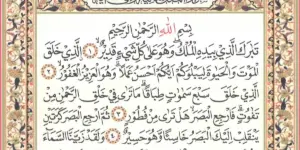 بِسْمِ اللهِ الرَّحْمٰنِ الرَّحِيْمِ
تَبٰرَكَ الَّذِيْ بِيَدِهِ الْمُلْكُ وَهُوَ عَلٰى كُلِّ شَيْءٍ قَدِيْرٌ ۝١ الَّذِيْ خَلَقَ
الْمَوْتَ وَالْحَيٰوةَ لِيَبْلُوَكُمْ اَيُّكُمْ اَحْسَنُ عَمَلًا وَهُوَ الْعَزِيْزُ الْغَفُوْرُ ۝٢
الَّذِيْ خَلَقَ سَبْعَ سَمٰوٰتٍ طِبَاقًا مَا تَرٰى فِيْ خَلْقِ الرَّحْمٰنِ مِنْ
تَفٰوُتٍ فَارْجِعِ الْبَصَرَ هَلْ تَرٰى مِنْ فُطُوْرٍ ۝٣ ثُمَّ ارْجِعِ الْبَصَرَ كَرَّتَيْنِ
يَنْقَلِبْ اِلَيْكَ الْبَصَرُ خَاسِئًا وَهُوَ حَسِيْرٌ ۝٤ وَلَقَدْ زَيَّنَّا السَّمَاءَ